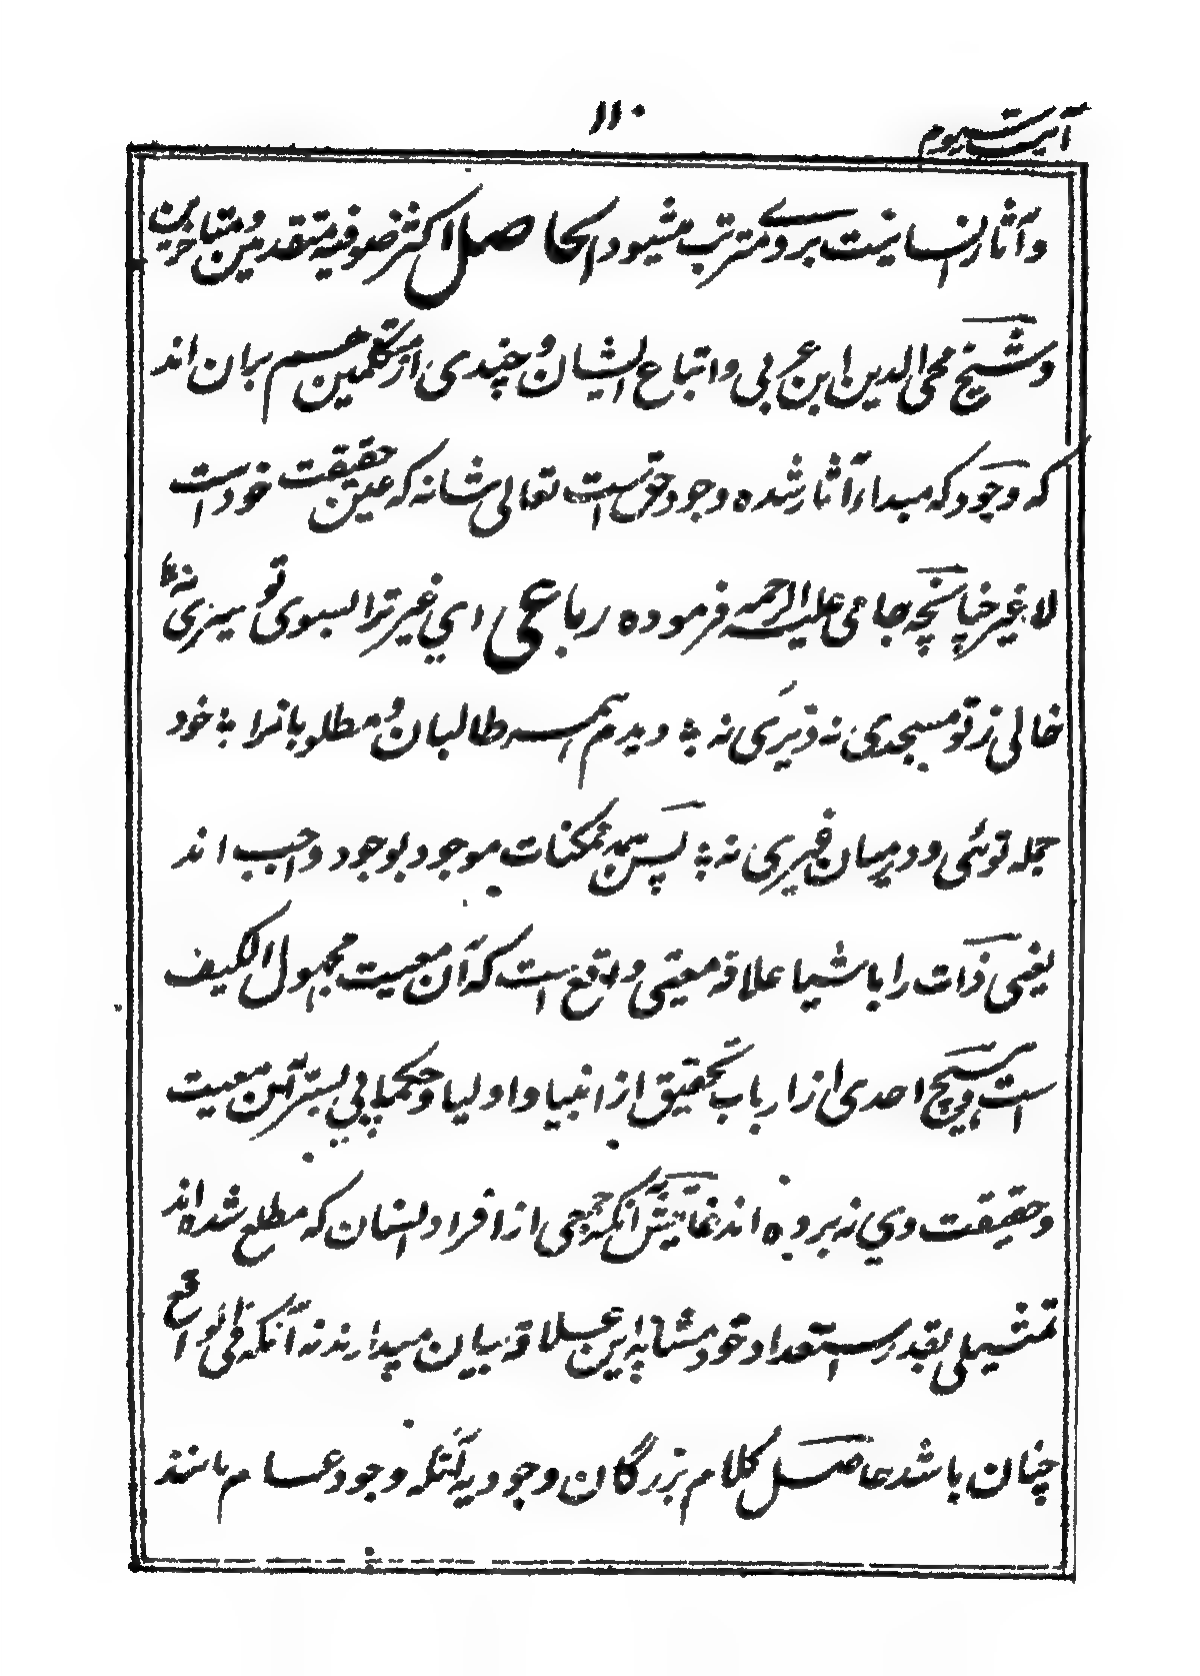 آیت سیوم
۱۱۰
و آثار انسانیت بروے مترتب میشود الحاصل اکثر صوفیه متقدمین و متاخرین
و شیخ محی الدین ابن عربی و اتباع ایشان و چندی از متکلمین هم بران اند
که وجود که مبداء آثار شده وجود حق است تعالی شانه که عین حقیقت خود است
لا غیر چنانچه جامی علیه الرحمه فرموده رباعی ای غیر ترا بسوی تو سیری نه
خالی ز تو مسجدی نه دیری نه ؞ دیدم همه طالبان و مطلوبانرا ؞ خود
جمله توئی و درمیان غیری نه ؞ پس همه ممکنات موجود بوجود واجب اند
یعنی ذات را با شیا علاقه معیتی واقع است که آن معیت مجهول الکیف
است و هیچ احدی از ارباب تحقیق از انبیا و اولیا و حکما پی بسر این معیت
و حقیقت وی نه برده اند غایتش آنکه جمعی از افراد انسان که مطلع شده اند
تمثیلی بقدر استعداد خود مشابه این علاقه بیان میدارند نه آنکه فی الواقع
چنان باشد حاصل کلام بزرگان وجودیه آنکه وجود عام مانند